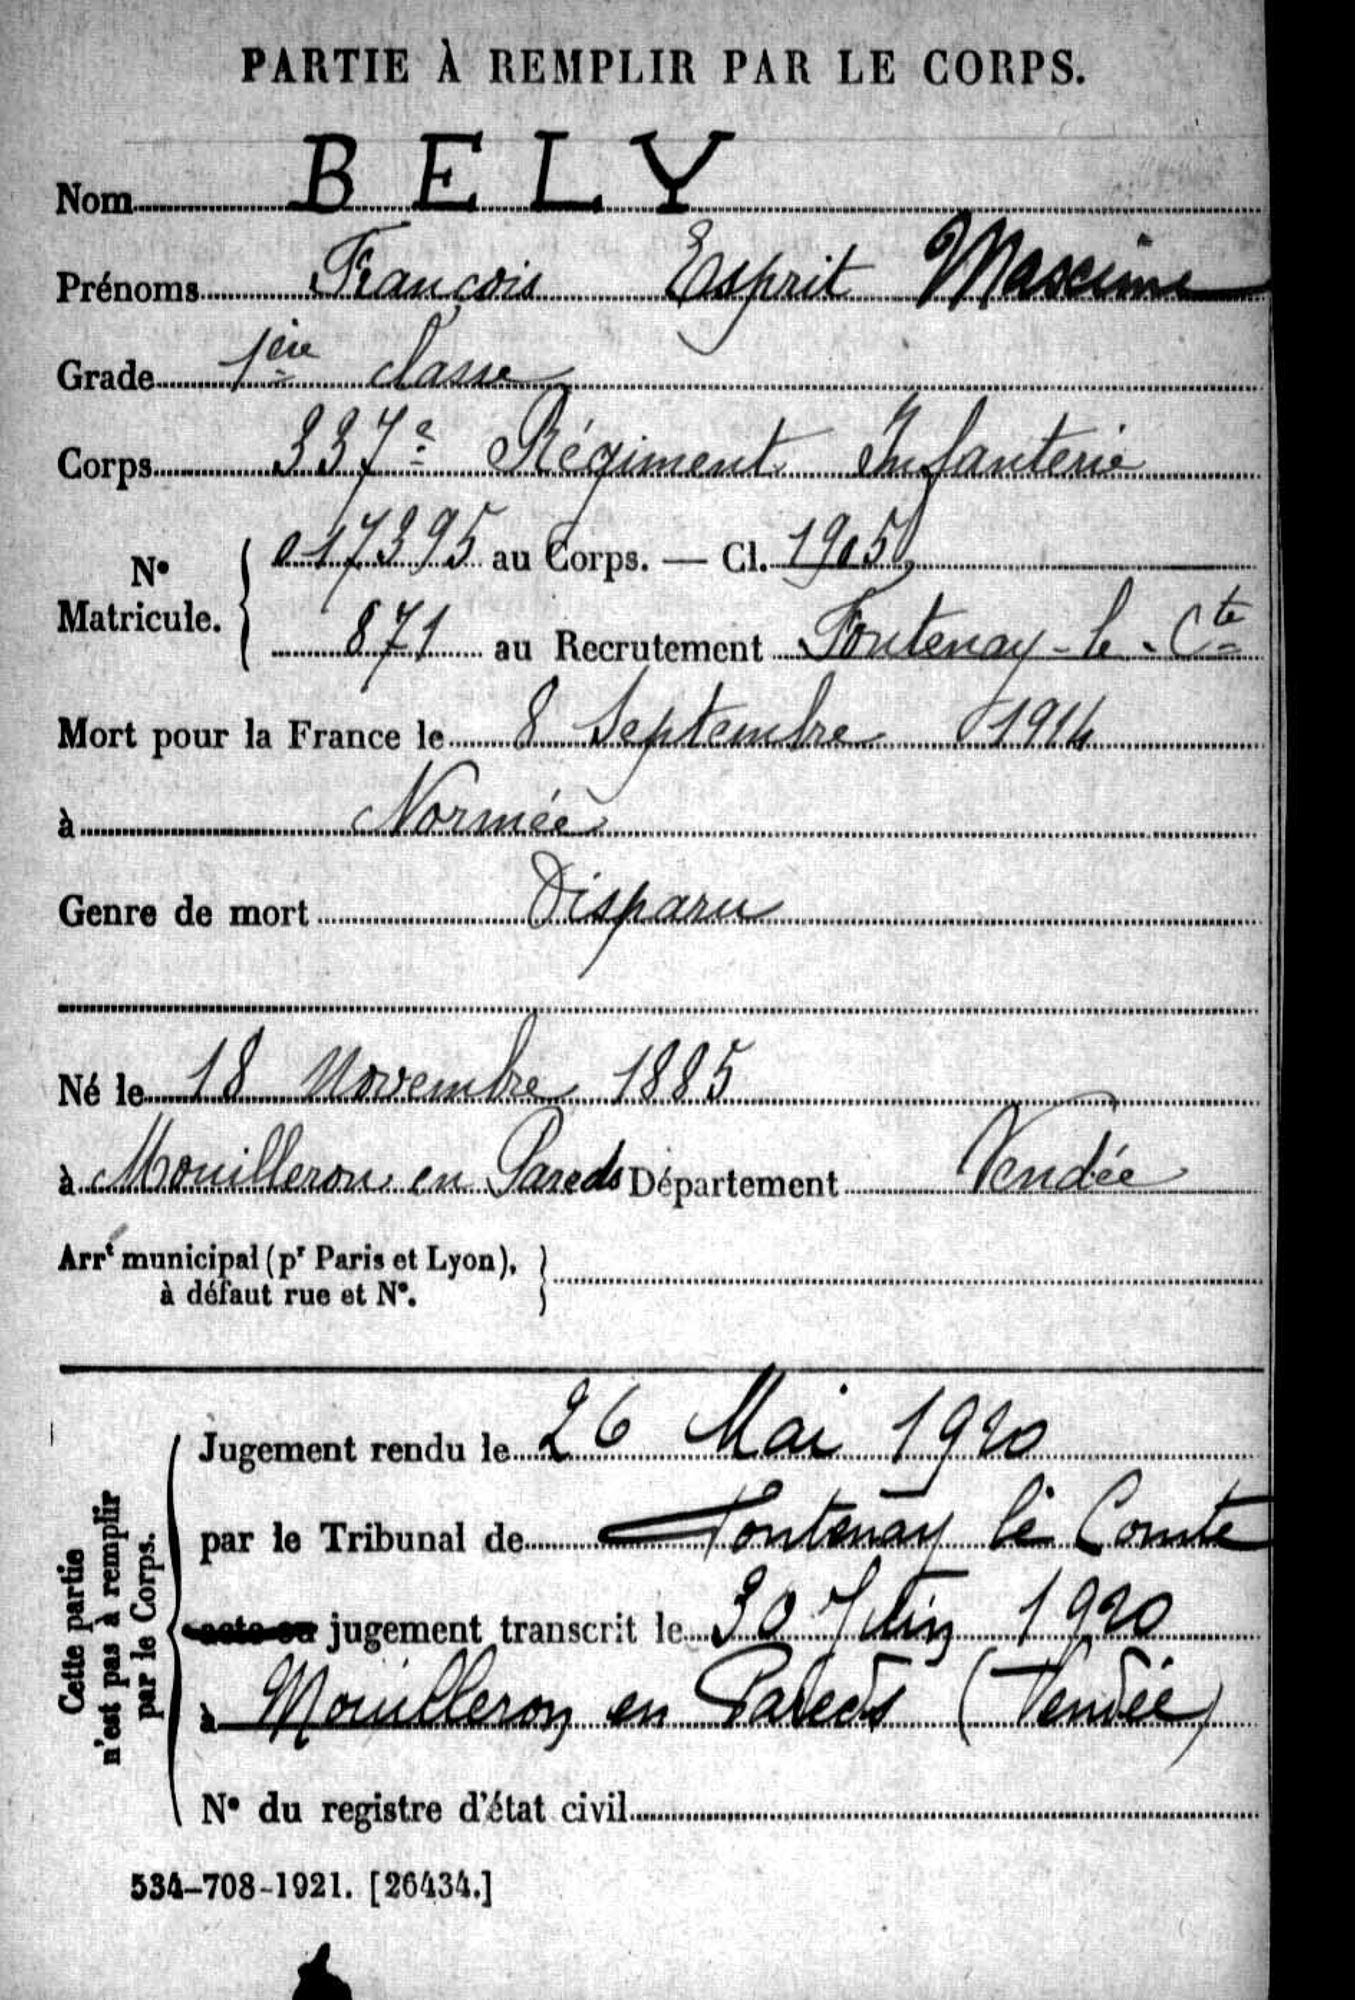 PARTIE À REMPLIR PAR LE CORPS.
Nom BELY
Prénoms François Esprit Maxime
Grade 1ère classe
Corps 337e Régiment Infanterie
No Matricule. { 017395 au Corps. — Cl. 1905
871 au Recrutement Fontenay-le-Cte
Mort pour la France le 8 Septembre 1914
à Normée
Genre de mort Disparu
Né le 18 Novembre 1885
à Mouilleron en Pareds Département Vendée
Arrt municipal (pr Paris et Lyon), }
à défaut rue et No.
Cette partie
n'est pas à remplir
par le Corps.
Jugement rendu le 26 Mai 1920
par le Tribunal de Fontenay le Comte
acte ou jugement transcrit le 30 Juin 1920
à Mouilleron en Pareds (Vendée)
No du registre d'état civil
534-708-1921. [26434.]